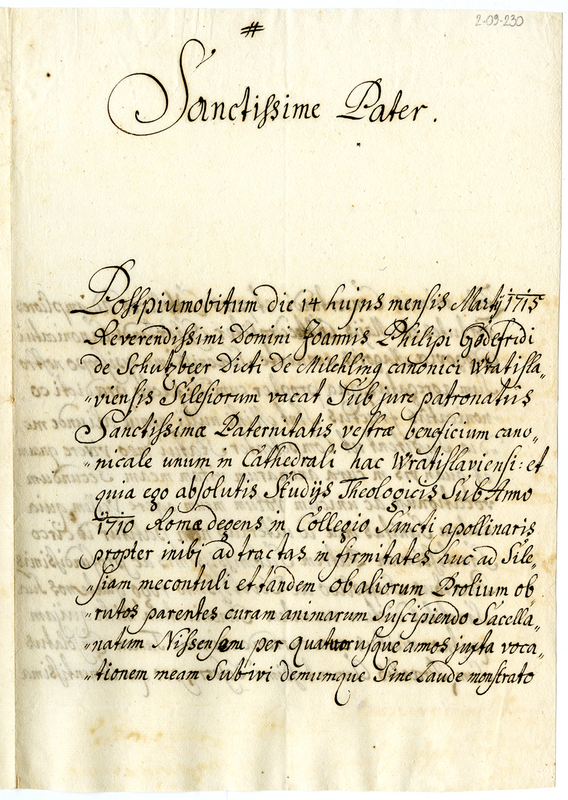 2-09-230
#
Sanctissime Pater.
Postpiumobitum die 14 hujus mensis Martÿ 1715
Reverendissimi Domini Joannis Philipi Godefridi
de Schutzbeer Dicti De Milchling canonici Wratisla„
„viensis Silesiorum vacat Sub jure patronatûs
Sanctissimæ Paternitatis vestræ beneficium cano„
„nicale unum in Cathedrali hac Wratislaviensi: et
quia ego absolutis Studÿs Theologicis Sub Anno
1710 Romæ degens in Collegio Sancti apollinaris
propter inibj adtractas in firmitates huc ad Sile„
„siam mecontuli et tandem ob aliorum Prolium ob
„ratos parentes curam animarum Suscipiendo Sacella„
„natum Nissensem per quatuorusque annos juxta voca„
„tionem meam Subivi demumque Sine Laude monstrato